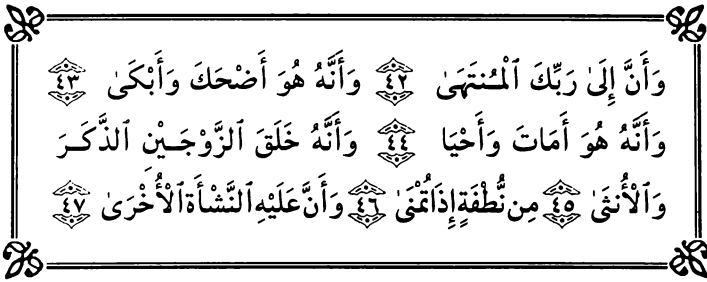 وَأَنَّ إِلَىٰ رَبِّكَ ٱلْمُنتَهَىٰ ٤٢ وَأَنَّهُ هُوَ أَضْحَكَ وَأَبْكَىٰ ٤٣
وَأَنَّهُ هُوَ أَمَاتَ وَأَحْيَا ٤٤ وَأَنَّهُ خَلَقَ ٱلزَّوْجَيْنِ ٱلذَّكَرَ
وَٱلْأُنثَىٰ ٤٥ مِن نُّطْفَةٍ إِذَا تُمْنَىٰ ٤٦ وَأَنَّ عَلَيْهِ ٱلنَّشْأَةَ ٱلْأُخْرَىٰ ٤٧